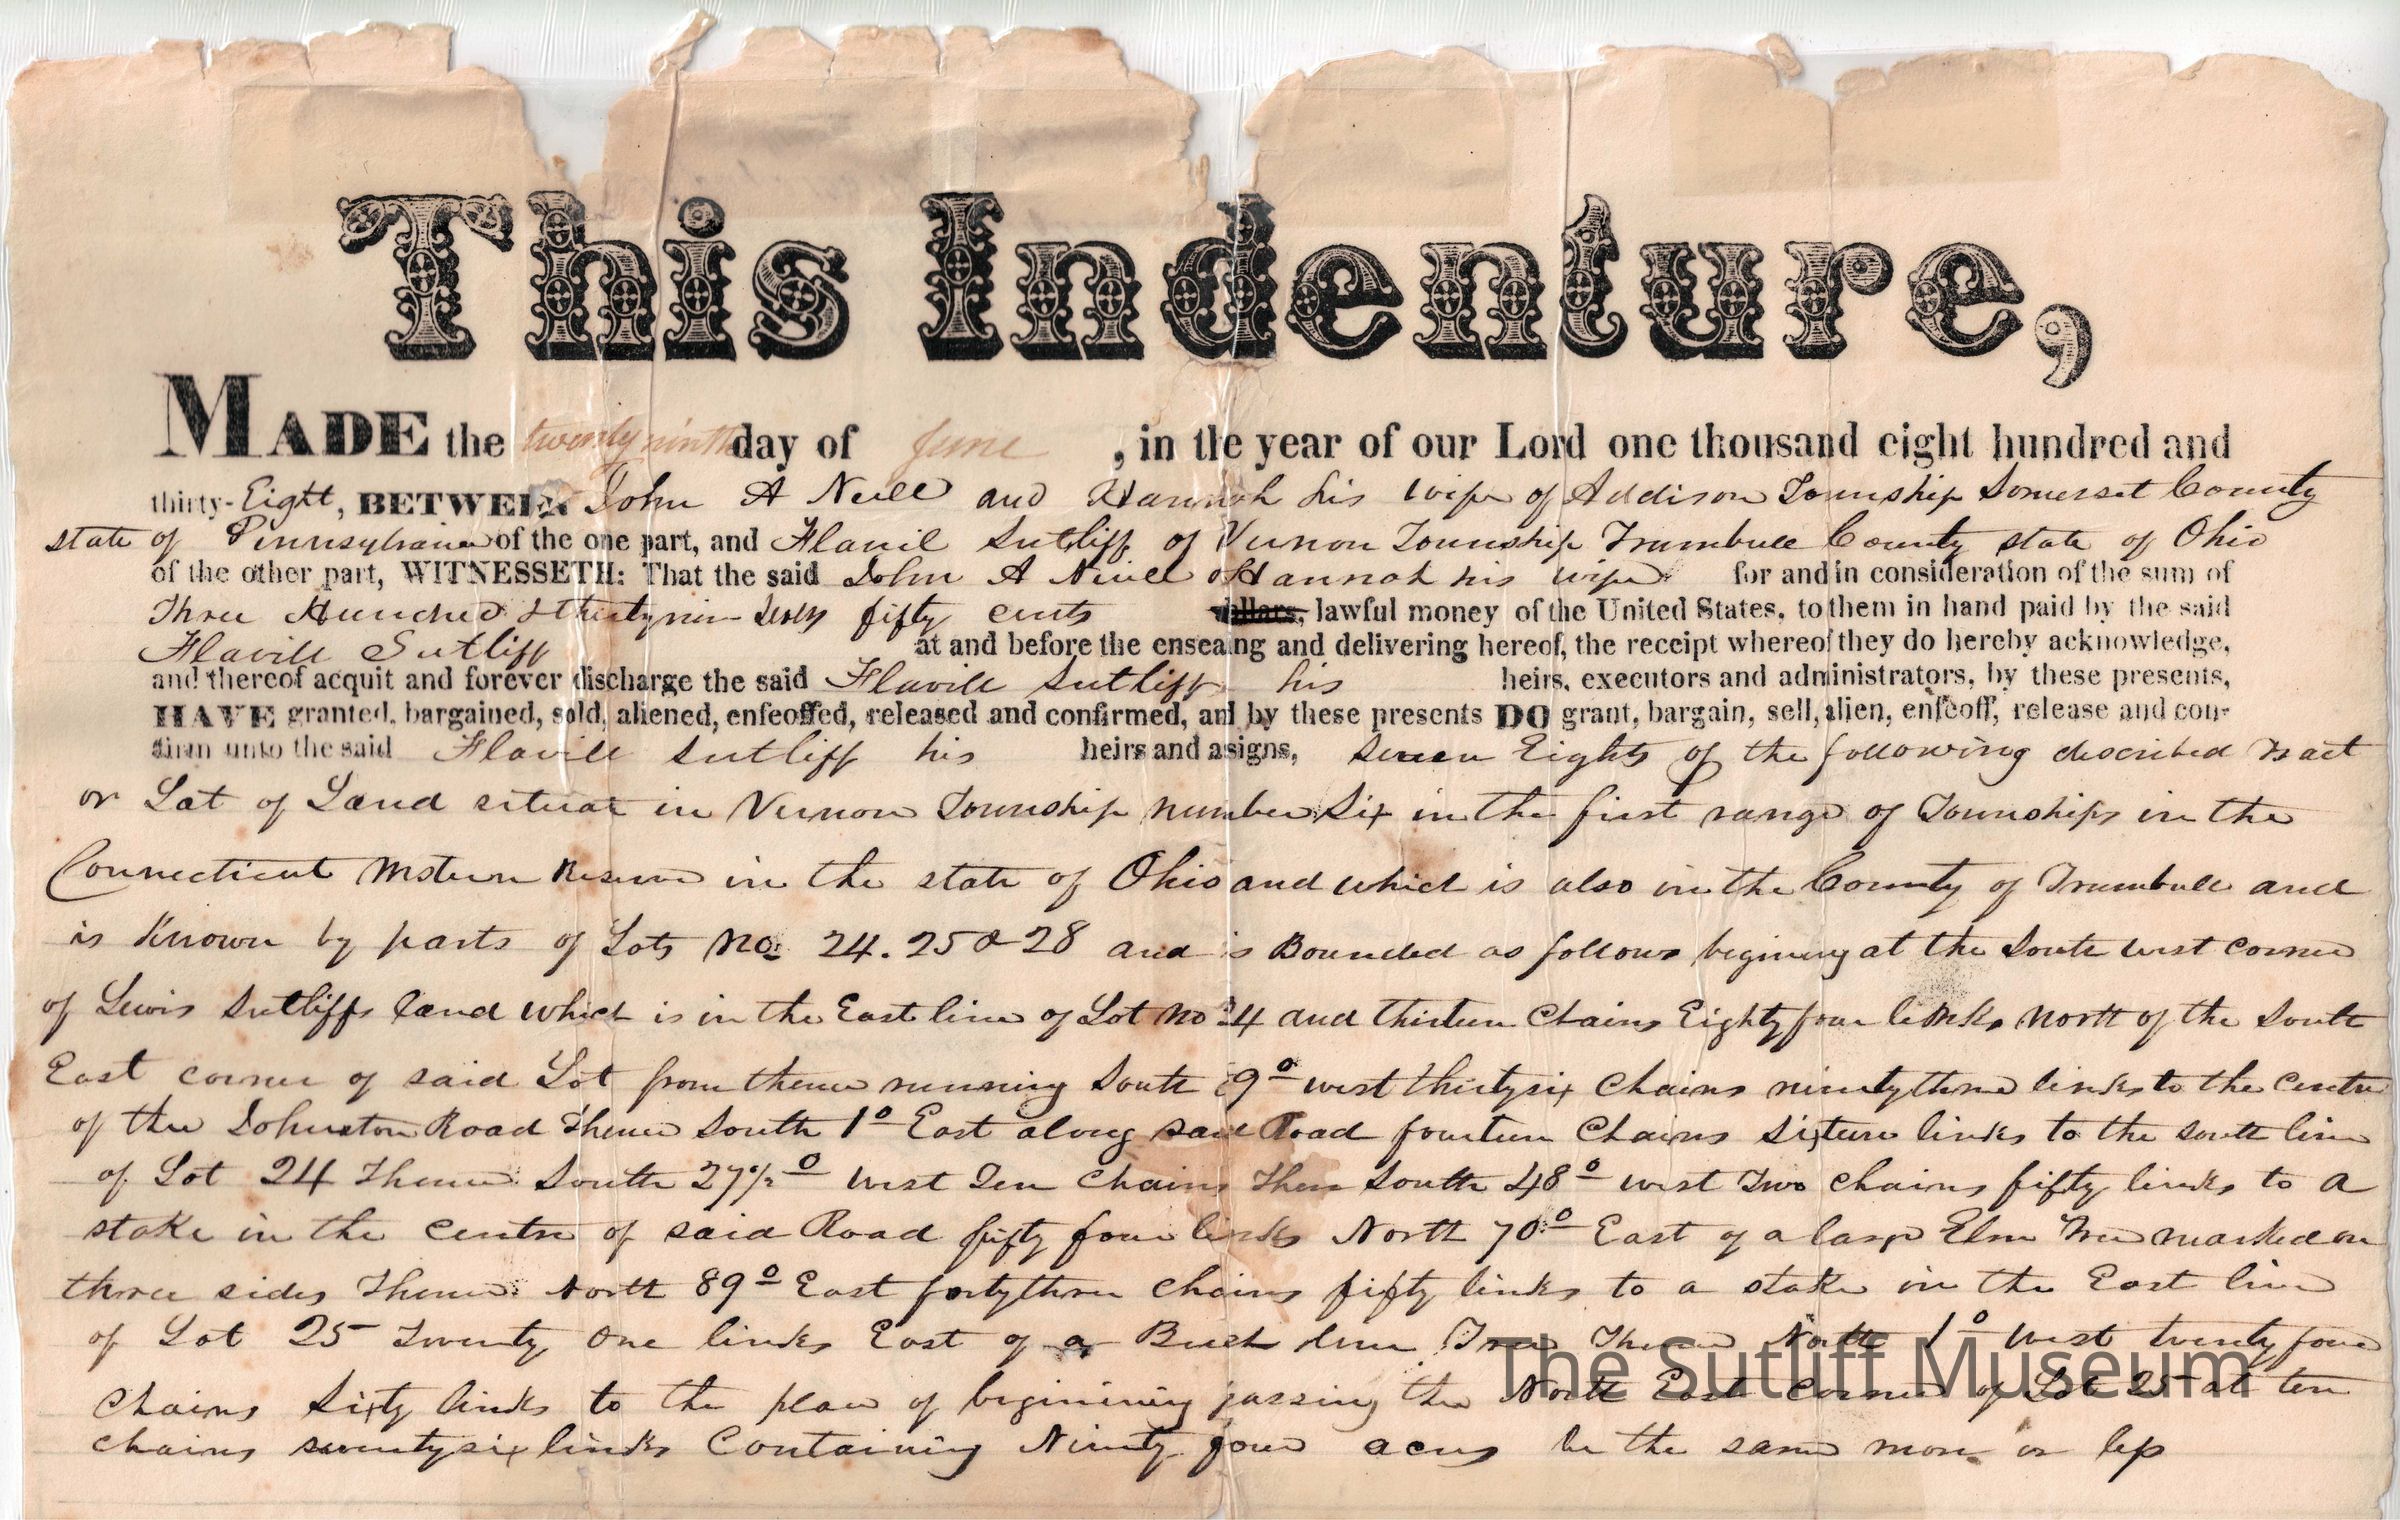 This Indenture,
MADE the twenty ninth day of June , in the year of our Lord one thousand eight hundred and
thirty-Eight, BETWEEN John A Neill and Hannah his wife of Addison Township Somerset County
state of Pennsylvania of the one part, and Flavil Sutliff of Vernon Township Trumbull County state of Ohio
of the other part, WITNESSETH: That the said John A Neill & Hannah his wife for and in consideration of the sum of
Three Hundred & thirty nin fifty cents dollars, lawful money of the United States, to them in hand paid by the said
Flavill Sutliff at and before the ensealing and delivering hereof, the receipt whereof they do hereby acknowledge,
and thereof acquit and forever discharge the said Flavill Sutliff his heirs, executors and administrators, by these presents,
HAVE granted, bargained, sold, aliened, enfeoffed, released and confirmed, and by these presents DO grant, bargain, sell, alien, enfeoff, release and con-
firm unto the said Flavill Sutliff his heirs and assigns, seven Eights of the following described Tract
or Lot of Land situat in Vernon Township number Six in the first range of Townships in the
Connecticut Western Reserve in the state of Ohio and which is also in the County of Trumbull and
is Known by parts of Lots No. 24. 25 & 28 and is Bounded as follows begining at the South west corner
of Lewis Sutliffs land which is in the East line of Lot No 24 and thirteen Chains Eighty four links North of the South
East corner of said Lot from thence running South 89° west thirty six Chains ninety three links to the centre
of the Johnston Road Thence South 1° East along said Road fourteen Chains Sixteen links to the south line
of Lot 24 Thence South 27½° west Ten Chains Then South 48° west Two chains fifty links to a
stake in the centre of said Road fifty four links North 70° East of a large Elm Tree marked on
three sides Thence North 89° East forty three chains fifty links to a stake in the East line
of Lot 25 Twenty one links East of a Beech Tree Thence North 1° West twenty four
Chains Sixty links to the place of begining passing the North East corner of Lot 25 at ten
chains seventy six links Containing Ninety four acres be the same more or less
The Sutliff Museum